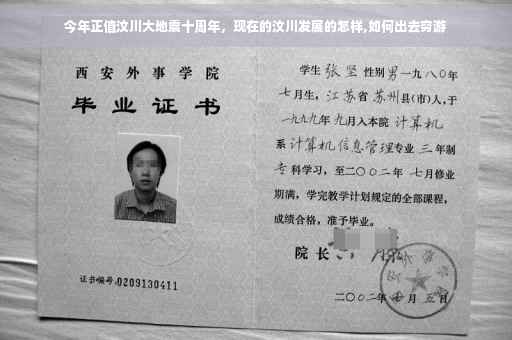 今年正值汶川大地震十周年，现在的汶川发展的怎样,如何出去穷游
西安外事学院
毕业证书
证书编号:0209130411
学生 张坚 性别 男 一九八〇年
七月生, 江苏省 苏州 县(市)人,于
一九九九年 九月入本院 计算机
系 计算机信息管理 专业 三 年制
专科学习, 至二〇〇二年 七月修业
期满, 学完教学计划规定的全部课程,
成绩合格, 准予毕业。
院长
二〇〇二年 月 五日